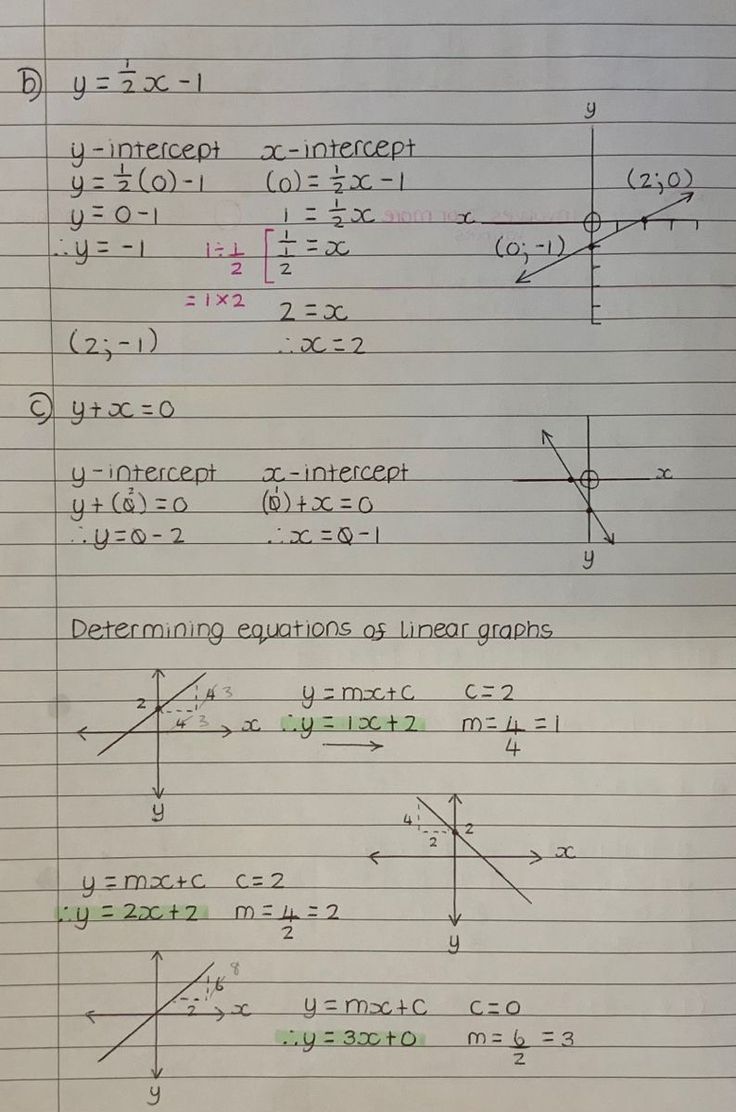 b) y = 1/2 x - 1
y
y-intercept x-intercept
y = 1/2 (0) - 1 (0) = 1/2 x - 1 (2;0)
y = 0 - 1 1 = 1/2 x x
∴ y = -1 1 ÷ 1/2 [ 1/(1/2) = x (0;-1)
= 1 × 2
2 = x
(2;-1) ∴ x = 2
c) y + x = 0
y-intercept x-intercept x
y + (0) = 0 (0) + x = 0
2 1
∴ y = 0 - 2 ∴ x = 0 - 1
y
Determining equations of linear graphs
2 4 3 y = mx + c c = 2
4 3 x ∴ y = 1x + 2 m = 4/4 = 1
y
4 2
2 x
y = mx + c c = 2
∴ y = 2x + 2 m = 4/2 = 2
y
6 8
2 x y = mx + c c = 0
∴ y = 3x + 0 m = 6/2 = 3
y